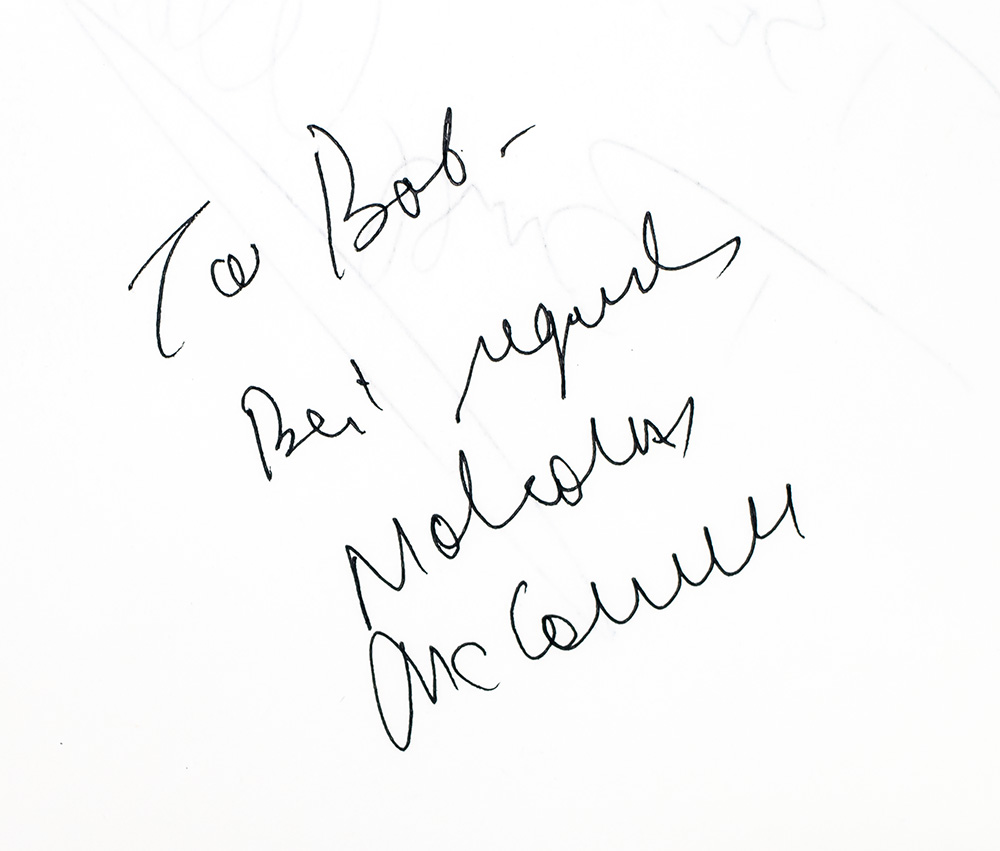 To Bob-
Best regards
Malcolm
McConnell